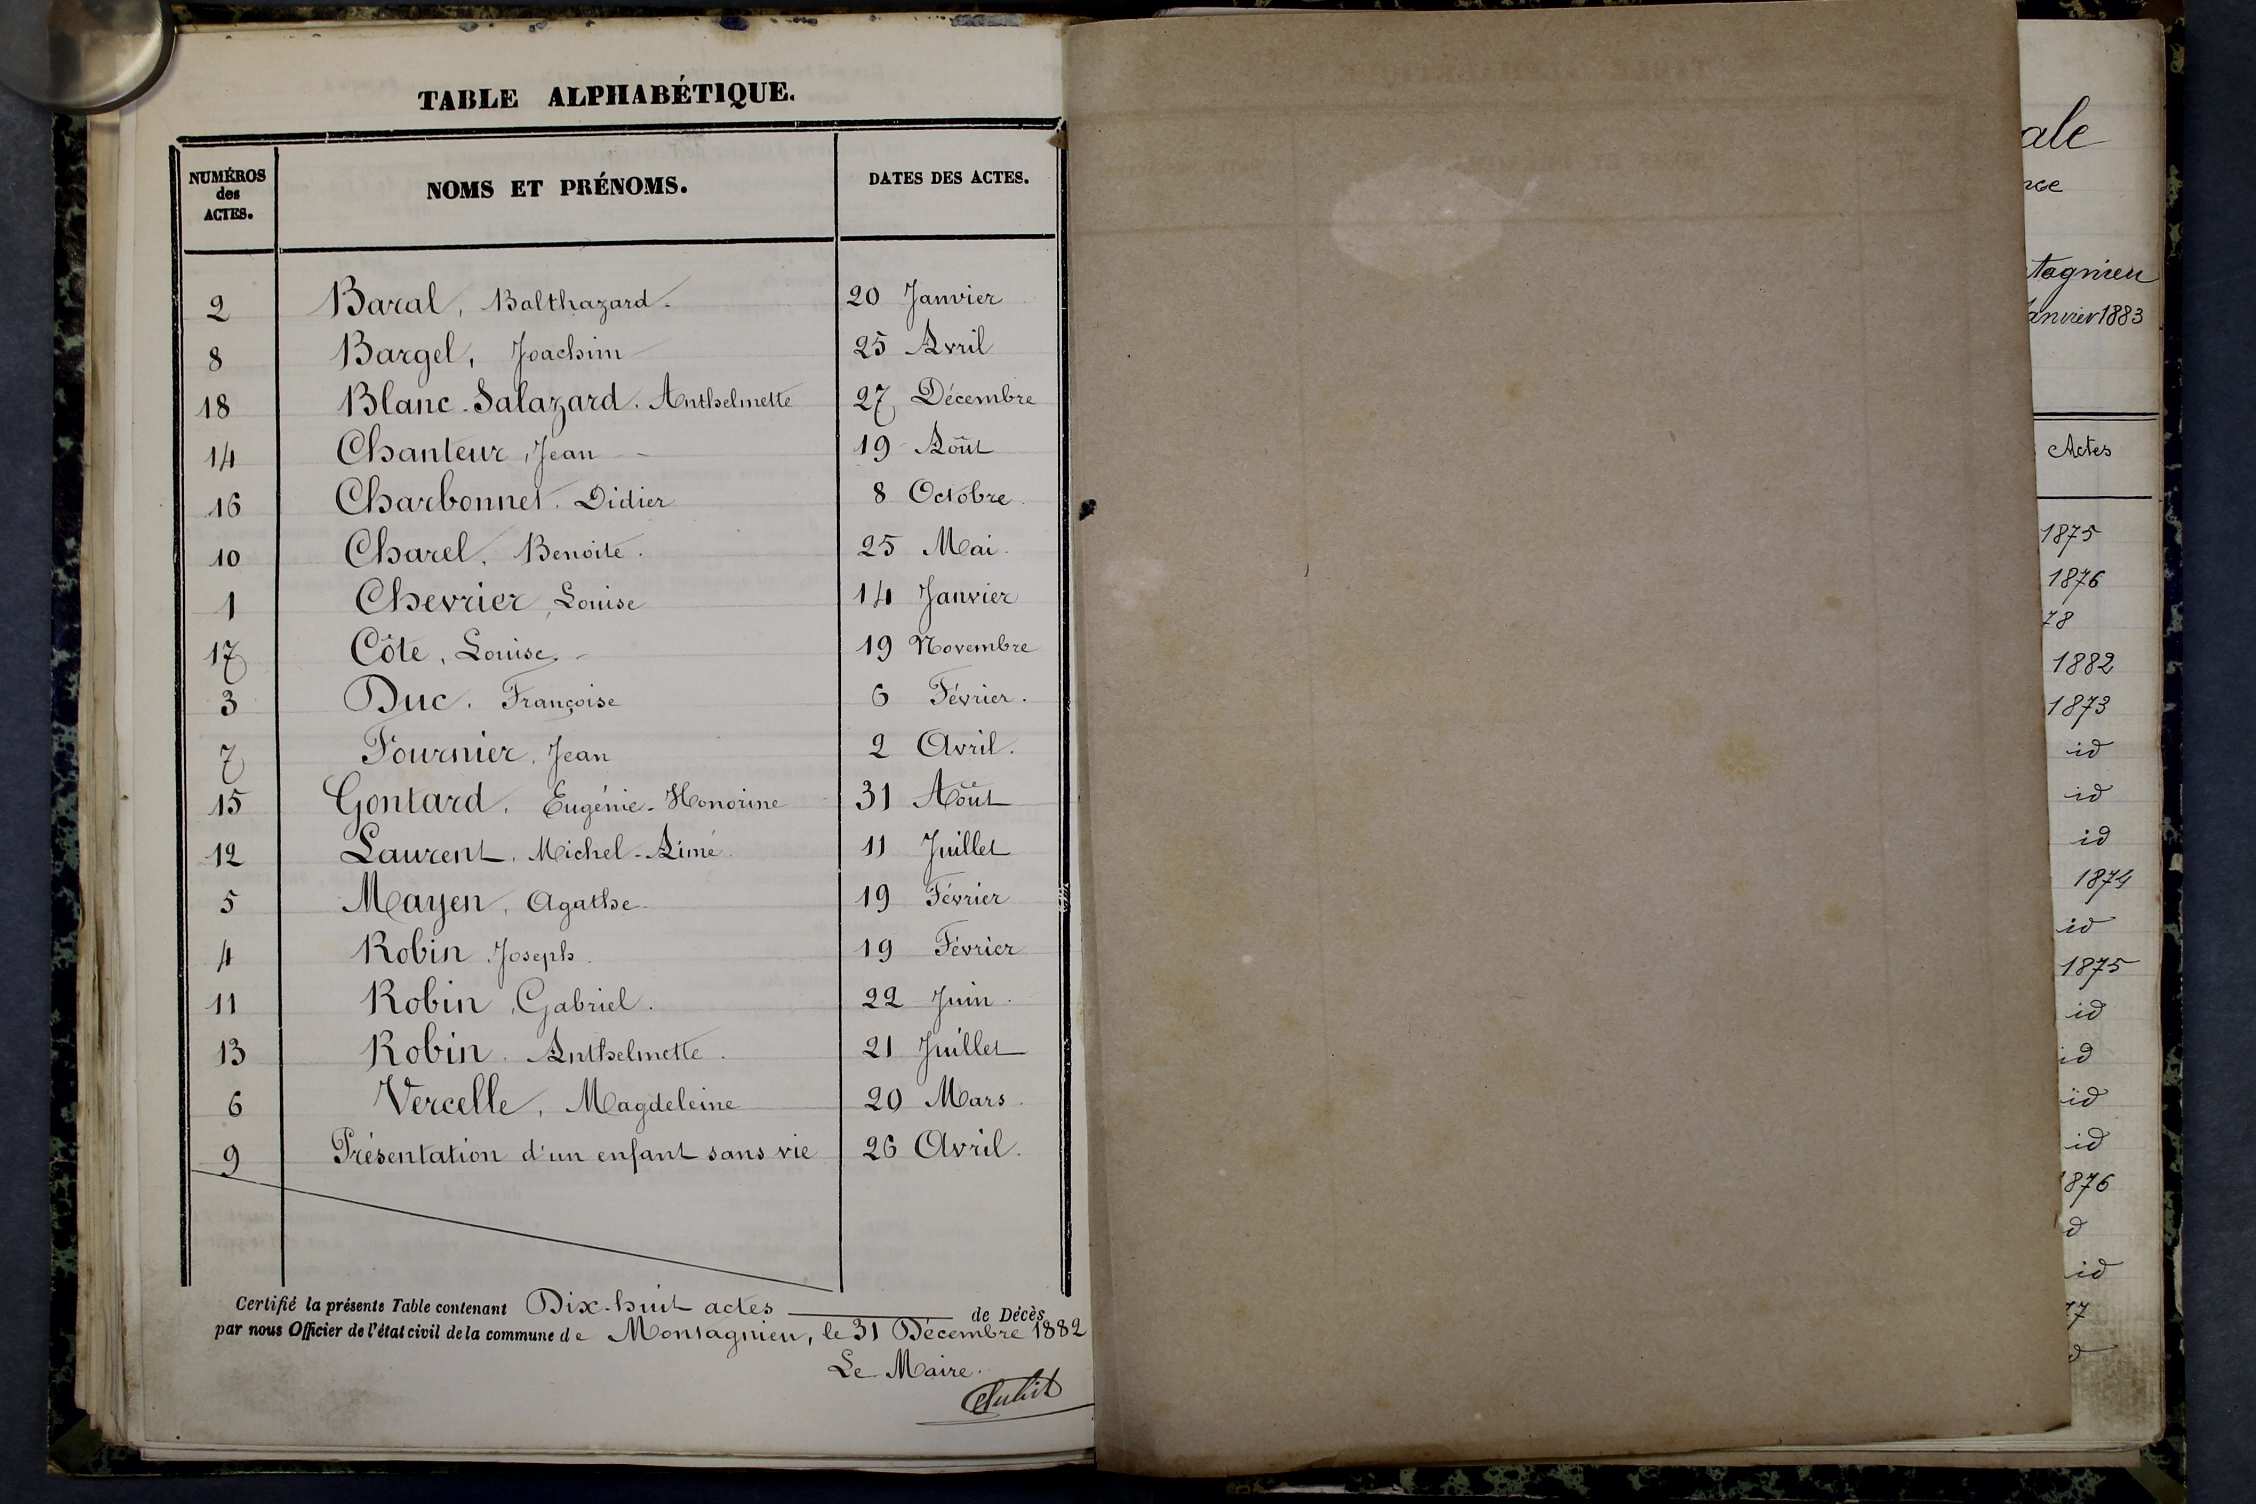 TABLE ALPHABÉTIQUE.
NUMÉROS des ACTES. NOMS ET PRÉNOMS. DATES DES ACTES.
2 Baral, Balthazard. 20 Janvier
8 Bargel, Joachim 25 Avril
18 Blanc-Salazard. Anthelmette 27 Décembre
14 Chanteur, Jean 19 Août
16 Charbonnel. Didier 8 Octobre
10 Charel, Benoite. 25 Mai
1 Chevrier, Louise 14 Janvier
17 Côte, Louise 19 Novembre
3 Duc. Françoise 6 Février.
7 Fournier, Jean 2 Avril.
15 Gontard, Eugénie-Honorine 31 Août
12 Laurent, Michel-Aimé 11 Juillet
5 Mayen, Agathe 19 Février
4 Robin Joseph. 19 Février
11 Robin, Gabriel. 22 Juin
13 Robin. Anthelmette. 21 Juillet
6 Vercelle, Magdeleine 20 Mars.
9 Présentation d'un enfant sans vie 26 Avril.
Certifié la présente Table contenant Dix-huit actes de Décès
par nous Officier de l'état civil de la commune de Montagnieu, le 31 Décembre 1882
Le Maire.
ale
tagnieu
anvier 1883
Actes
1875
1876
78
1882
1873
id
id
id
1874
id
1875
id
id
id
id
1876
d
id
77
d